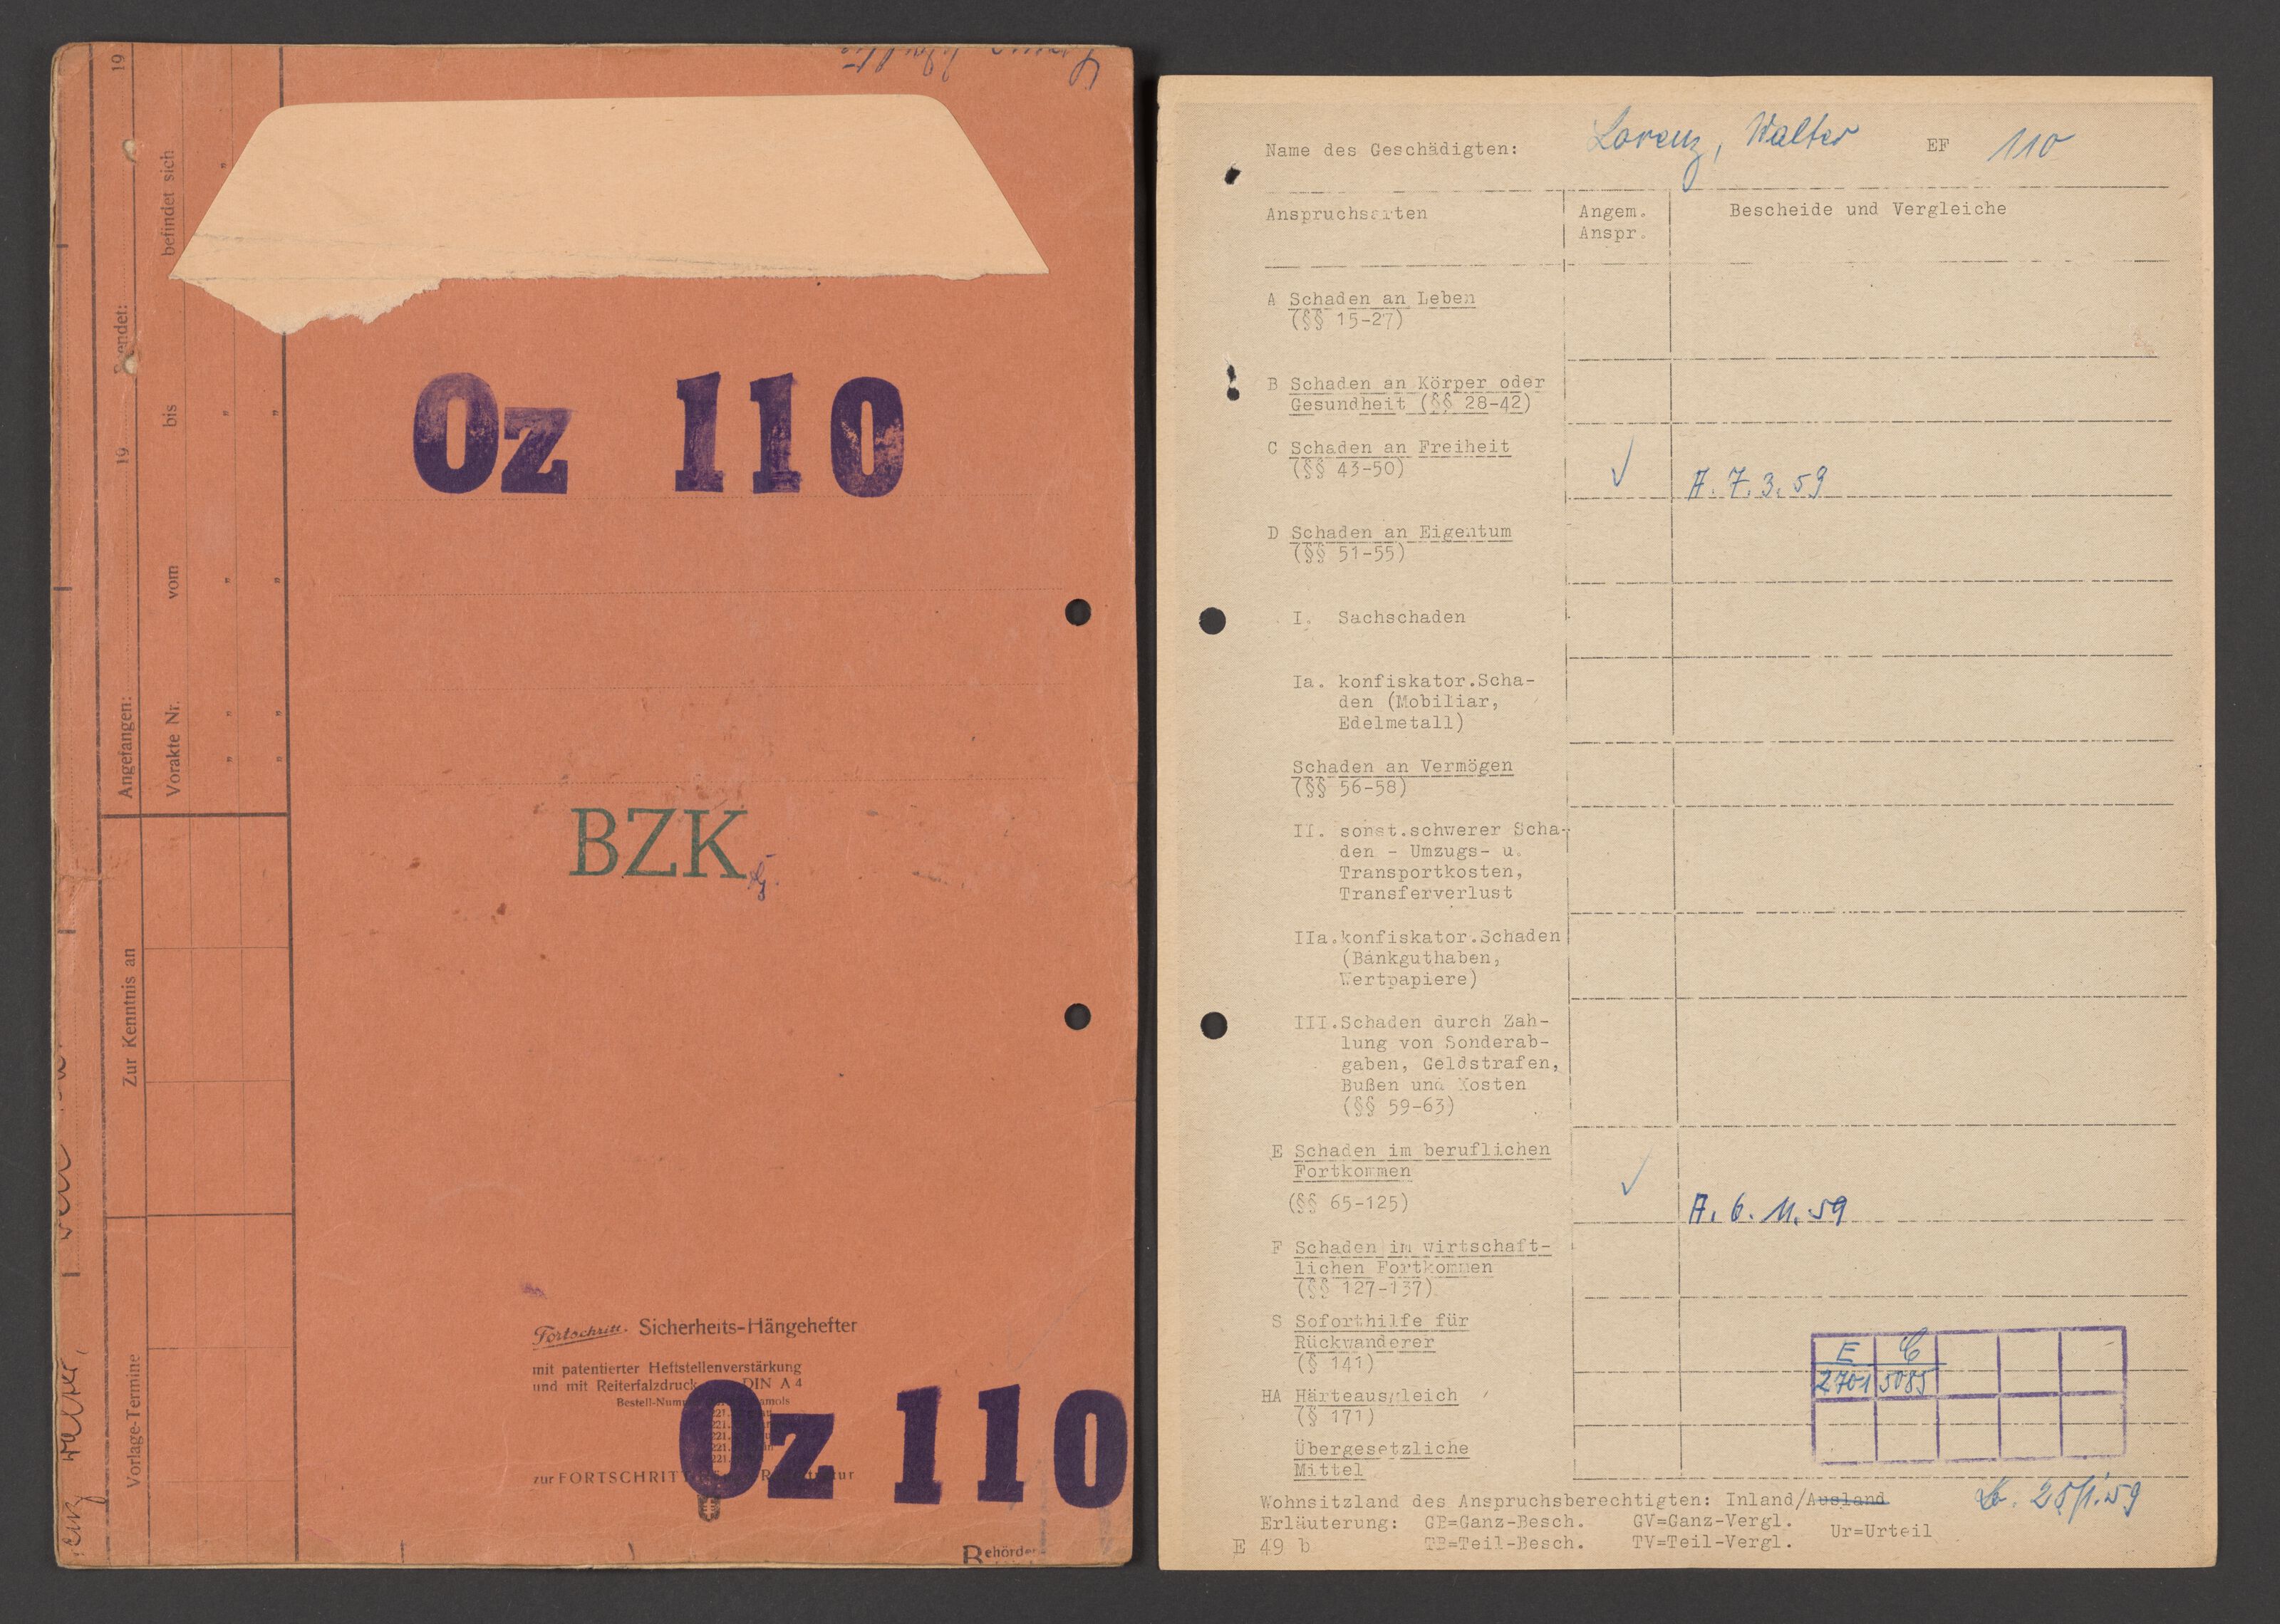 19
Beendet:
19
Angefangen:
befindet sich
bis
vom
Vorakte Nr.
Zur Kenntnis an
Vorlage-Termine
Oz 110
BZK
Fortschritt Sicherheits-Hängehefter
mit patentierter Heftstellenverstärkung
und mit Reiterfalzdruck DIN A 4
zur FORTSCHRITT
Oz 110
Behörde
Name des Geschädigten: Lorenz, Walter EF 110
Anspruchsarten
Angem.
Anspr.
Bescheide und Vergleiche
A Schaden an Leben
(§§ 15-27)
B Schaden an Körper oder
Gesundheit (§§ 28-42)
C Schaden an Freiheit
(§§ 43-50) ✓ A. 7. 3. 59
D Schaden an Eigentum
(§§ 51-55)
I. Sachschaden
Ia. konfiskator.Scha-
den (Mobiliar,
Edelmetall)
Schaden an Vermögen
(§§ 56-58)
II. sonst.schwerer Scha-
den - Umzugs- u.
Transportkosten,
Transferverlust
IIa.konfiskator.Schaden
(Bankguthaben,
Wertpapiere)
III.Schaden durch Zah-
lung von Sonderab-
gaben, Geldstrafen,
Bußen und Kosten
(§§ 59-63)
E Schaden im beruflichen
Fortkommen
(§§ 65-125) ✓ A. 6. 11. 59
F Schaden im wirtschaft-
lichen Fortkommen
(§§ 127-137)
S Soforthilfe für
Rückwanderer
(§ 141)
HA Härteausgleich
(§ 171)
Übergesetzliche
Mittel
E C
2701 5085
Wohnsitzland des Anspruchsberechtigten: Inland/Ausland
Erläuterung: GB=Ganz-Besch. GV=Ganz-Vergl. Ur=Urteil
E 49 b TB=Teil-Besch. TV=Teil-Vergl.